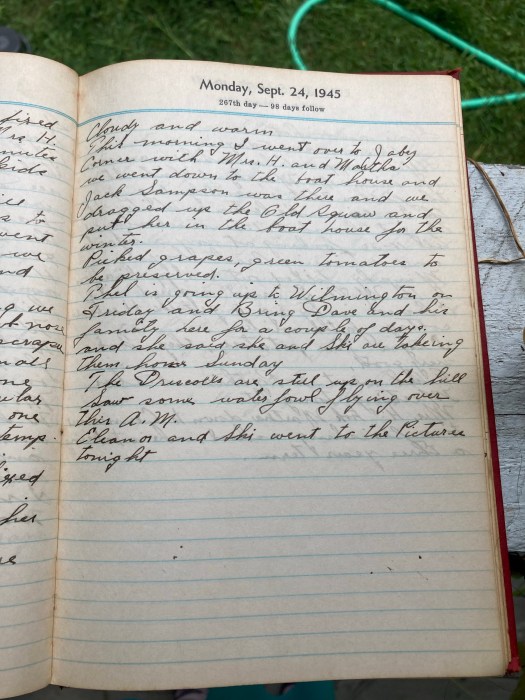 Monday, Sept. 24, 1945
267th day — 98 days follow
Cloudy and warm
This morning I went over to Jaby
Corner with Mrs. H. and Martha
we went down to the boat house and
Jack Sampson was there and we
dragged up the Old Squaw and
put her in the boat house for the
winter.
Picked grapes, green tomatoes to
be preserved.
Phel is going up to Wilmington on
Friday and Bring Dave and his
family here for a couple of days.
and she said she and Ski are takeing
them home Sunday
The Driscolls are still up on the hill
Saw some water fowl flying over
this A.M.
Eleanor and Ski went to the Pictures
tonight
fixed
Mrs. H.
kids
to
went
we
nd
we
nose
scrape
one
one
temp.
her